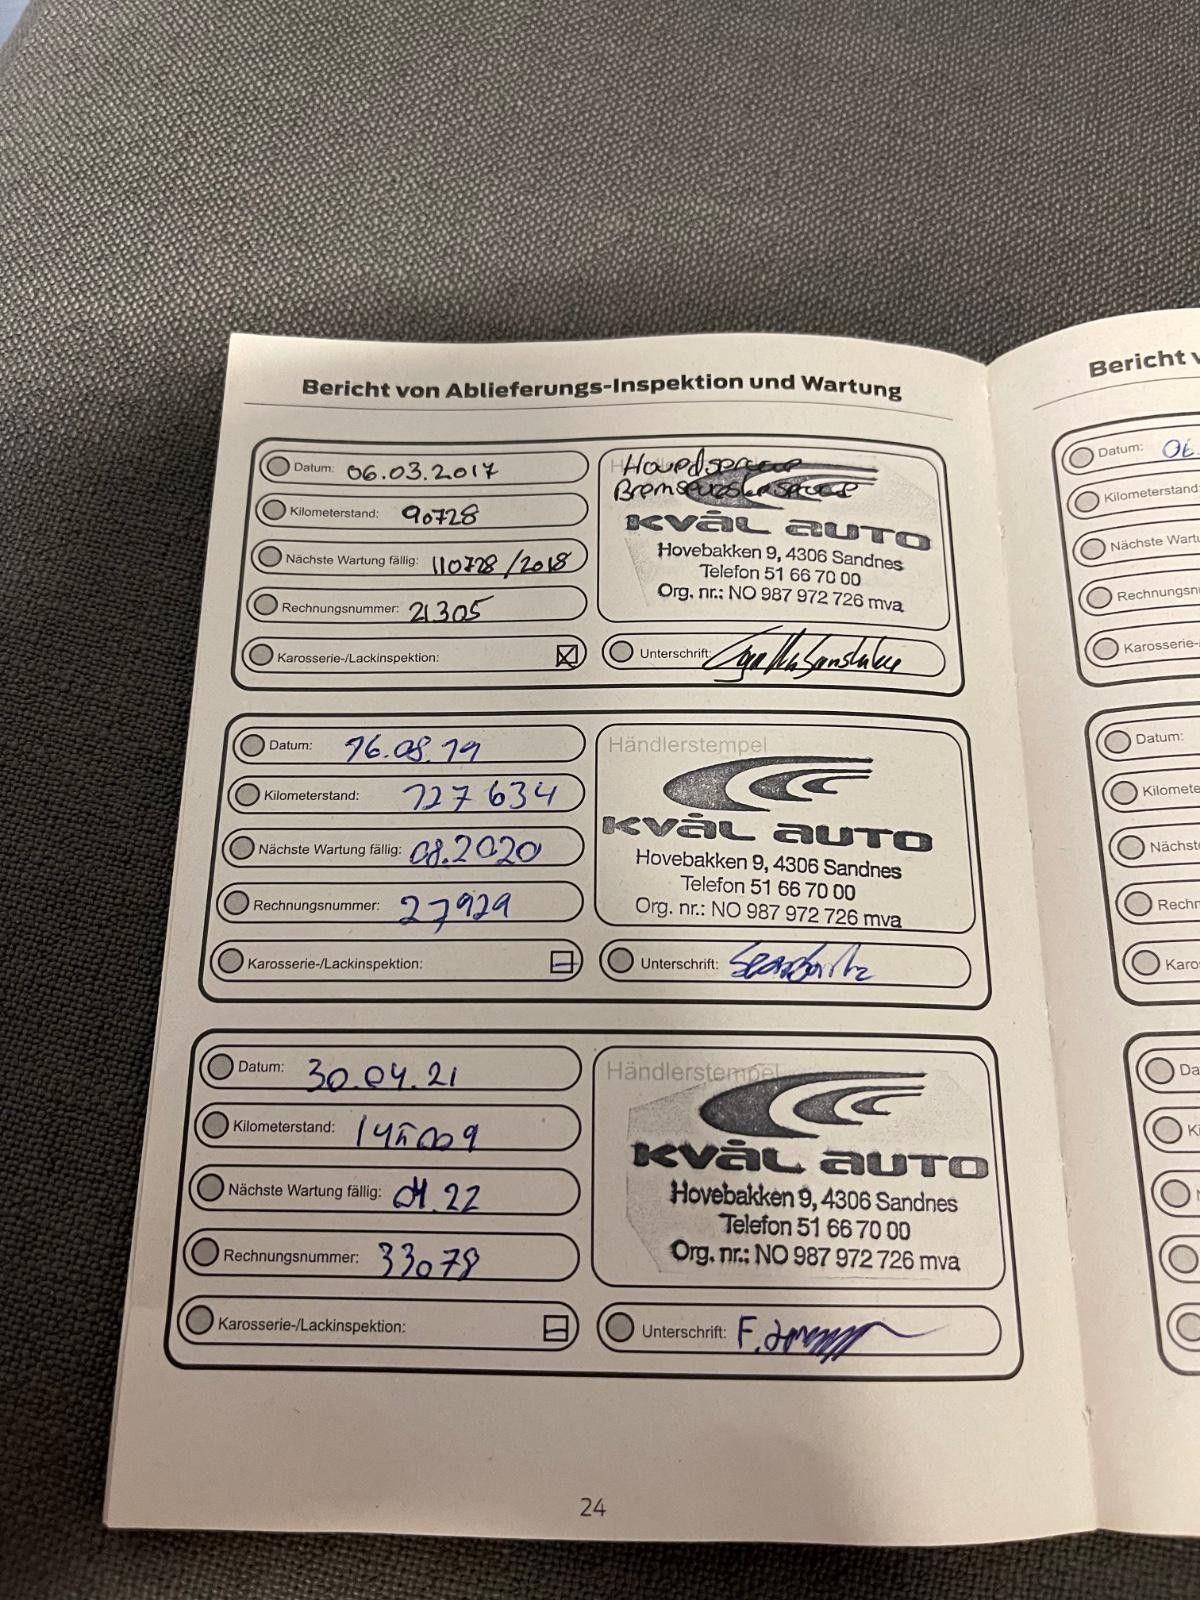 Bericht von Ablieferungs-Inspektion und Wartung
Datum: 06.03.2017
Kilometerstand: 90728
Nächste Wartung fällig: 110728/2018
Rechnungsnummer: 21305
Karosserie-/Lackinspektion:
Hovedservice
KVÅL AUTO
Hovebakken 9, 4306 Sandnes
Telefon 51 66 70 00
Org. nr.: NO 987 972 726 mva
Unterschrift:
Datum: 16.08.19
Kilometerstand: 127 634
Nächste Wartung fällig: 08.2020
Rechnungsnummer: 27929
Karosserie-/Lackinspektion:
Händlerstempel
KVÅL AUTO
Hovebakken 9, 4306 Sandnes
Telefon 51 66 70 00
Org. nr.: NO 987 972 726 mva
Unterschrift:
Datum: 30.04.21
Kilometerstand:
Nächste Wartung fällig: 04.22
Rechnungsnummer: 33078
Karosserie-/Lackinspektion:
Händlerstempel
KVÅL AUTO
Hovebakken 9, 4306 Sandnes
Telefon 51 66 70 00
Org. nr.: NO 987 972 726 mva
Unterschrift: F.
24
Bericht
Datum: 06.
Kilometerstand:
Nächste
Karosserie-
Datum: